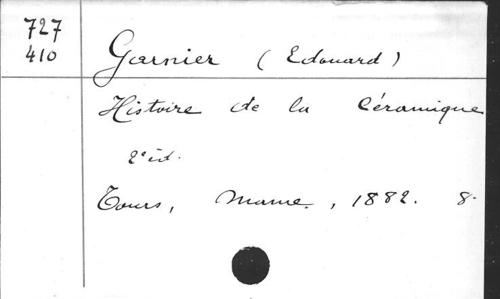 727
410
Garnier (Edouard)
Histoire de la Céramique
2e éd.
Tours, Mame, 1882. 8-